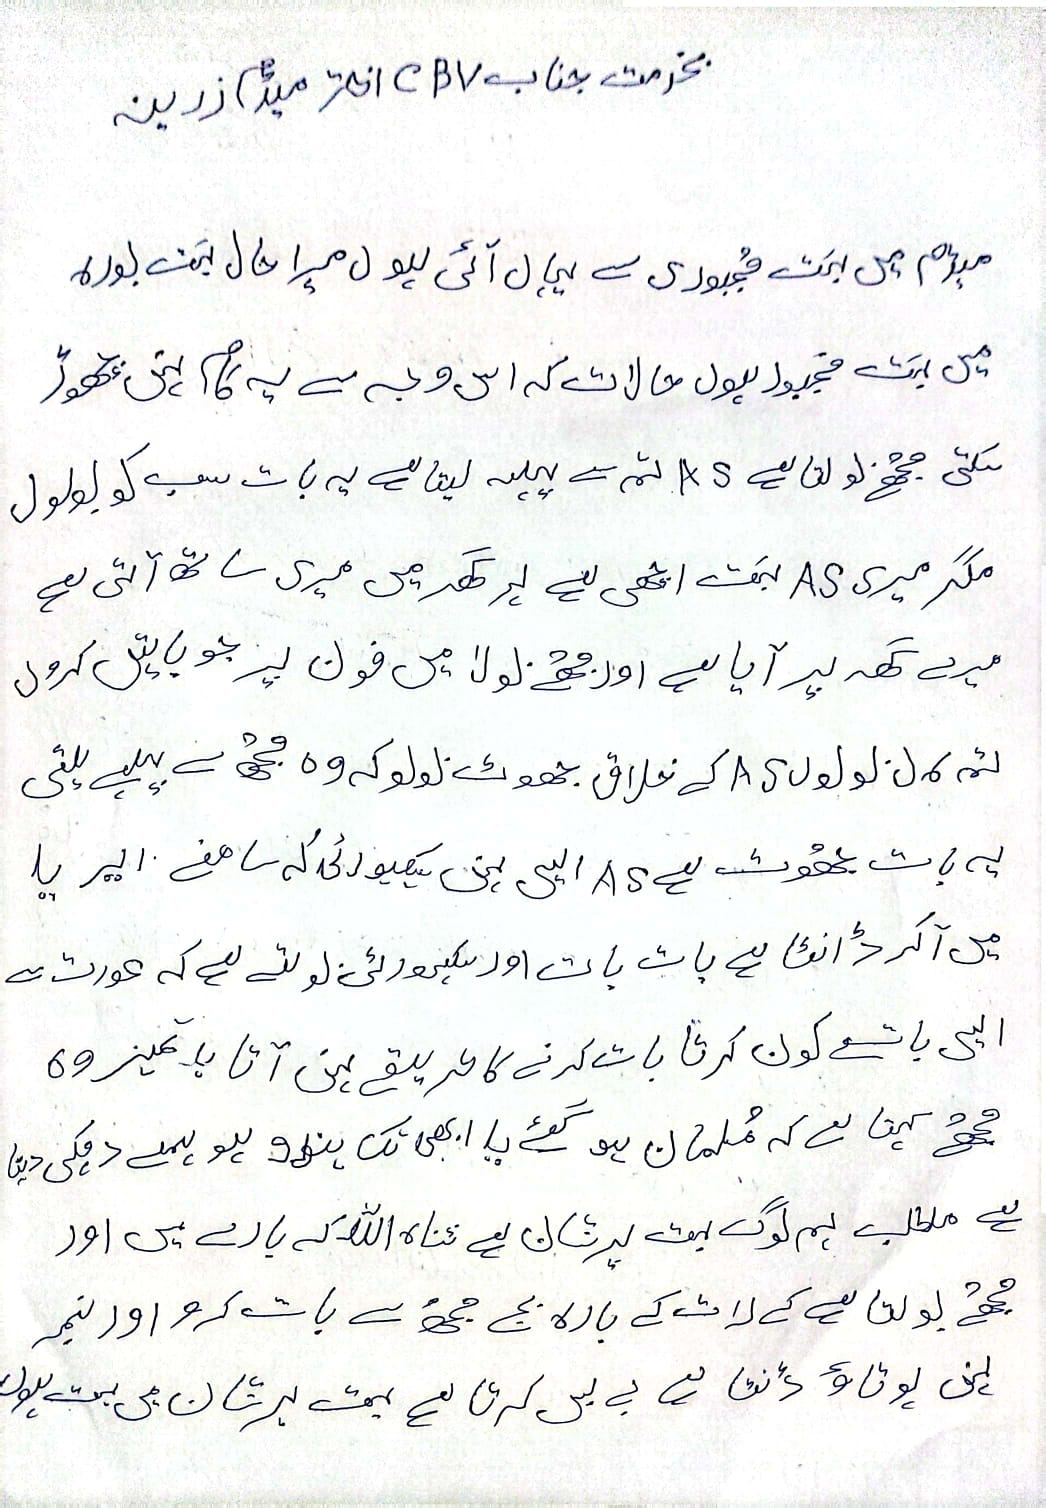 بخرمت جناب CBV افسر میڈم زرینہ
میڈم میں بہت مجبوری سے یہاں آئی ہوں میرا حال بہت بورہ
میں بہت مجبور ہوں حالات کہ اس وجہ سے یہ کام نہیں چھوڑ
سکتی مجھے بولتا ہے AS تم سے پیسہ لیتا ہے یہ بات سب کو بولوں
مگر میری AS بہت اچھی ہے ہر گھر میں میری ساتھ آتی ہے
میرے گھر پر آیا ہے اور مجھے بولا میں فون پر جو باتیں کروں
تم ہاں بولوں AS کے خلاف جھوٹ بولو کہ وہ مجھ سے پیسے لیتی
یہ بات جھوٹ ہے AS ایسی نہیں سیکیورٹی کہ سامنے ایریا
میں آکر ڈانٹا ہے بات بات اور سیکیورٹی بولتے ہے کہ عورت سے
ایسی باتے کون کرتا بات کرنے کا طریقے نہیں آتا بدتمیز وہ
مجھے کہتا ہے کہ مسلمان ہو گئے یا ابھی تک ہندو ہو ہمیے دھمکی دیتا
ہے مطلب ہم لوگ بہت پرشان ہے ثناہ اللہ کہ بارے میں اور
مجھے بولتا ہے کے رات کے بارہ بجے مجھ سے بات کرو اور نمبر
نہیں ہوتا تو ڈنٹا ہے بے بس کرتا ہے بہت پرشان میں بہت ہوں